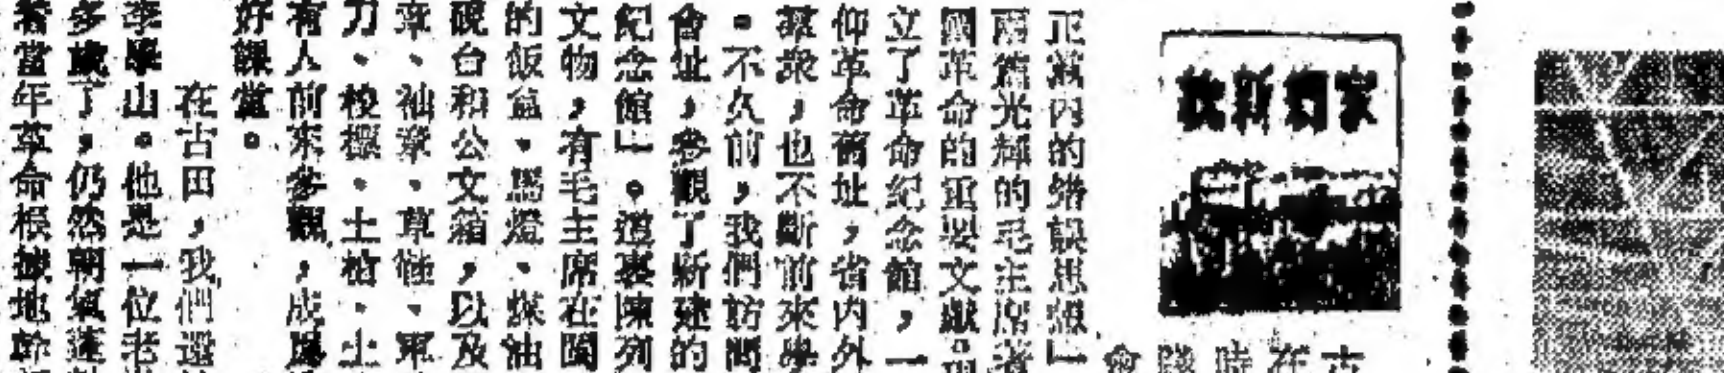 正黨內的錯誤思想」
兩篇光輝的毛主席著
國革命的重要文獻
立了革命紀念館，一
仰革命舊址，省內外
羣衆，也不斷前來學
。不久前，我們訪問
會址，參觀了新建的
紀念館」。這裏陳列
文物，有毛主席在閩
的飯盒、馬燈、煤油
硯台和公文箱，以及
章、袖章、草鞋、軍
刀、梭鏢、土槍、土
有人前來參觀，成爲
好課堂。
在古田，我們還
李學山。他是一位老
多歲了，仍然朝氣蓬
着當年革命根據地幹